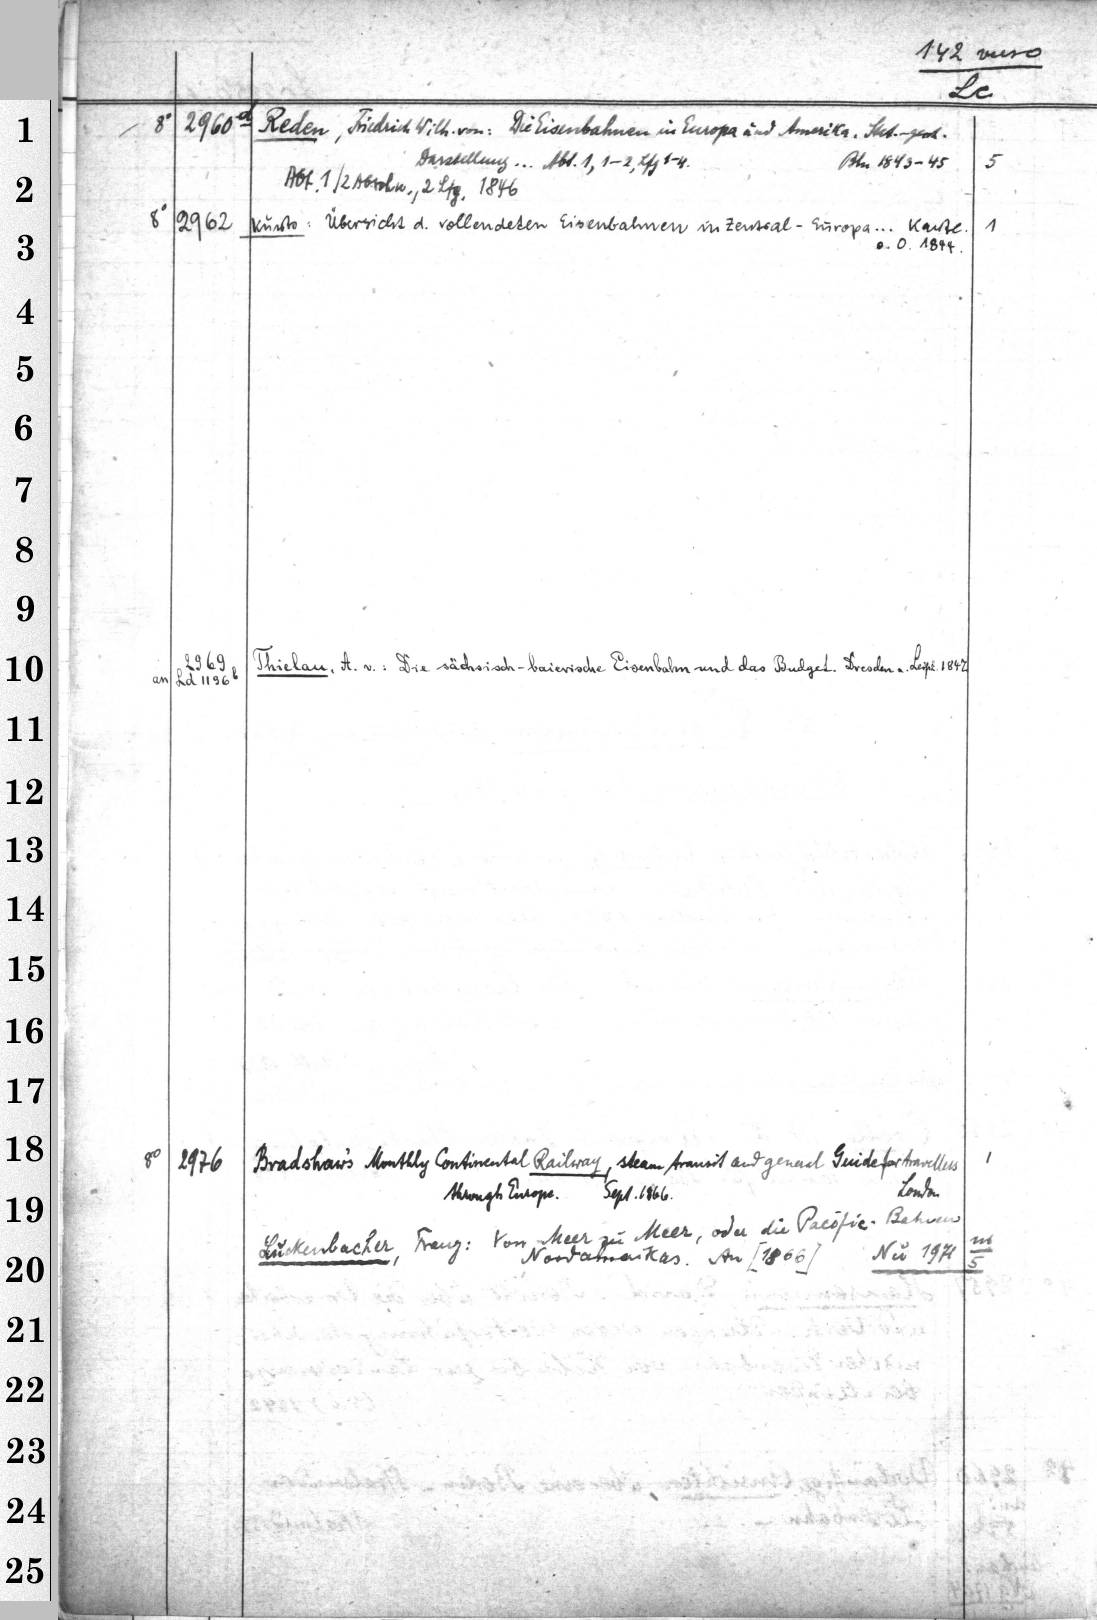 142 verso
Lc
1
8° 2960d Reden, Friedrich Wilh. von: Die Eisenbahnen in Europa und Amerika. Stat.-gesch.
Darstellung... Abt. 1, 1-2, Lfg 1-4. Bln 1843-45 5
2
Abt. 1/2 Abschn., 2 Lfg, 1846
8° 2962 Kunto: Übersicht d. vollendeten Eisenbahnen in Zentral-Europa... Karte. 1
3
o. O. 1844.
4
5
6
7
8
9
10
2969 Thielau, A. v.: Die sächsisch-baierische Eisenbahn und das Budget. Dresden u. Leipz. 1847
an Ld 1196b
11
12
13
14
15
16
17
18
8° 2976 Bradshaw's Monthly Continental Railway, steam transit and general Guide for travellers 1
through Europe. Sept. 1866. London
19
Lückenbacher, Franz: Von Meer zu Meer, oder die Pacific-Bahnen m
Nordamerikas. An [1866] Nü 1971 5
20
21
22
23
24
25